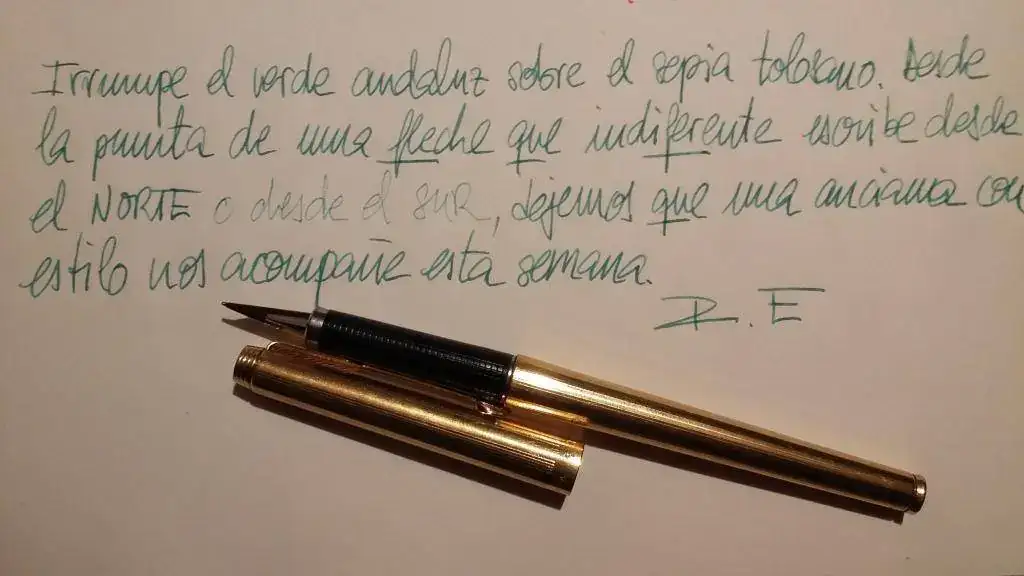 Irrumpe el verde andaluz sobre el sepia tolosano. Desde
la punta de una fleche que indiferente escribe desde
el NORTE o desde el SUR, dejemos que una anciana con
estilo nos acompañe esta semana.
R. E